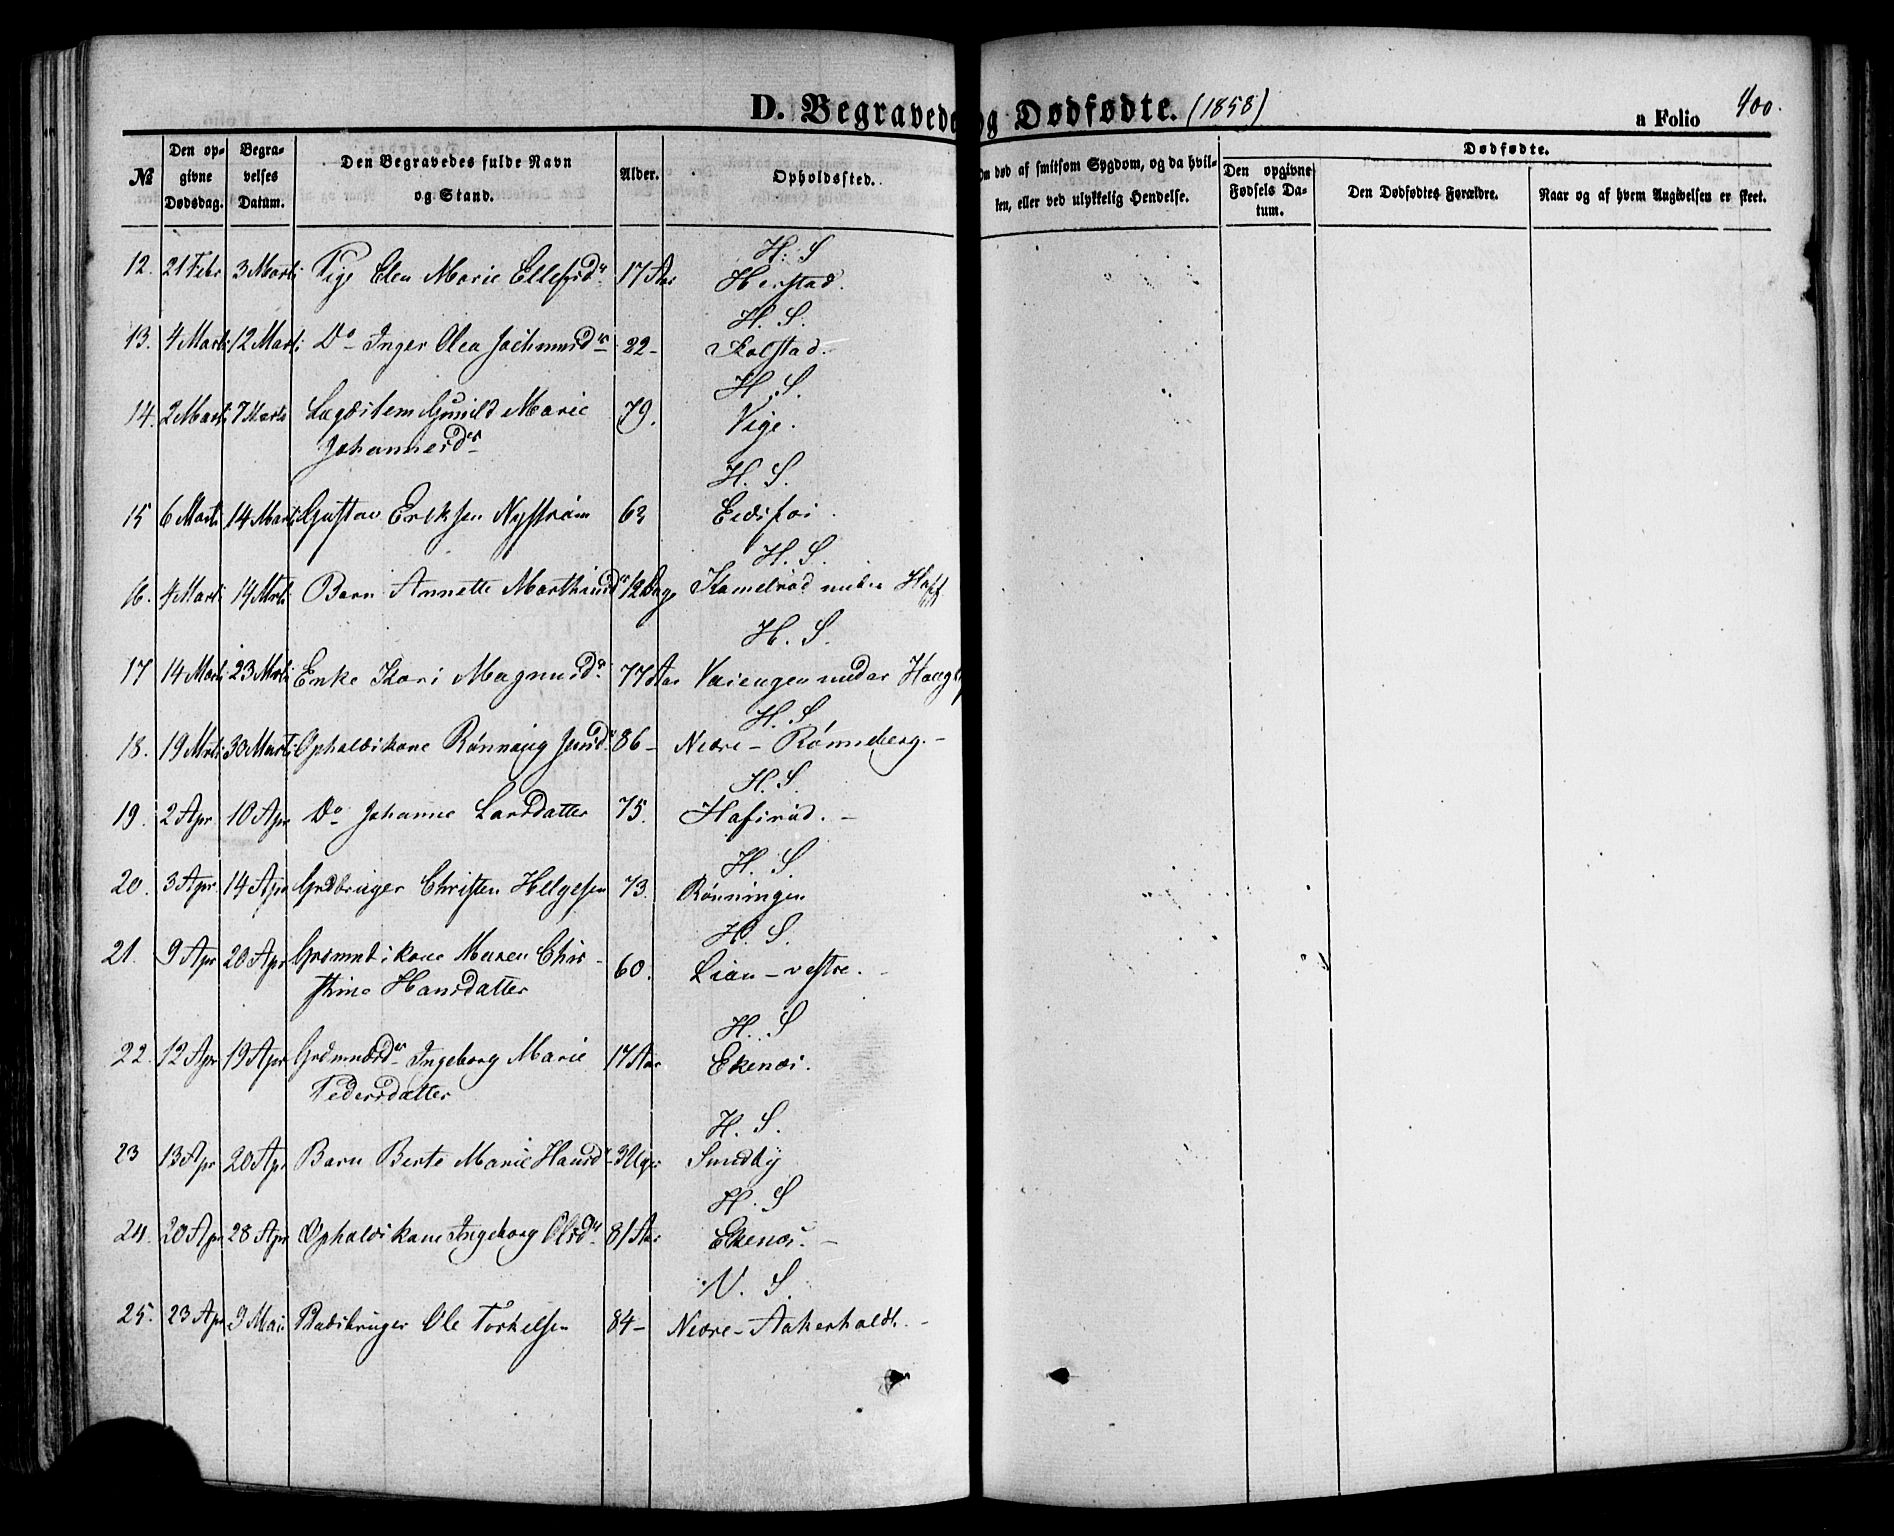 D. Begravede og Dødfødte. (1858)
a Folio 400.
№
Den opgivne Dødsdag.
Begravelses Datum.
Den Begravedes fulde Navn og Stand.
Alder.
Opholdssted.
Om død af smitsom Sygdom, og da hvilken, eller ved ulykkelig Hendelse.
Dødfødte.
Den opgivne Fødsels Datum.
Den Dødfødtes Forældre.
Naar og af hvem Angivelsen er skeet.
H. S
12. 21 Febr 3 Marti Pige Elen Marie Ellefsdr 17 Aar Herstad.
H. S.
13. 4 Marti 12 Marti Do Inger Olea Jochumsdr 22 - Kolstad.
H. S.
14. 2 Marti 7 Marti Lægdslem Gunild Marie 79. Vige.
Johannesdr
H. S.
15 6 Marti 14 Marti Gustav Eriksen Nystrøm 63 Eidsfos.
H. S.
16. 4 Marti 14 Mrti Barn Annette Mathisdr 12 Dage Kamelrød under Hoff
H. S.
17 14 Marti 23 Mrti Enke Kari Magnusdr 77 Aar under Haug
H. S.
18. 19 Mrti 30 Marti Opholdskone Rønnaug Jensdr 86 - Nedre - Rønneberg. -
H. S.
19. 2 Apr 10 Apr Do Johanne Larsdatter 75. Hafsrød. -
H. S.
20. 3 Apr 14 Apr Grdbruger Christen Helgesen 73. Rønningen
H. S.
21. 9 Apr 20 Apr Grmndskone Maren Chri- 60. Lian - vestre. -
stine Hansdatter
H. S
22. 12 Apr 19 Apr Grdmandsdr Ingeborg Marie 17 Aar Ekenæs.
Pedersdatter
H. S.
23 13 Apr 20 Apr Barn Berte Marie Hansdr 3 Uger Sundby
H. S
24. 20 Apr 28 Apr Opholdskone Ingeborg Olsdr 81 Aar Ekenæs. -
N. S.
25. 23 Apr 3 Mai Pladsbruger Ole Torkelsen 84 - Nedre - Aakerholdt. -